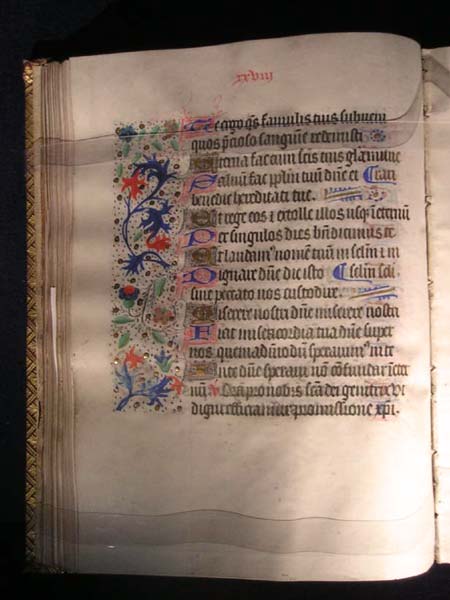 xxviij
Te ergo q̄s famulis tuis subueni
quos p̄cioso sanguīne redemisti
Eterna fac cum sc̄is tuis
Saluū fac pp̄lm tuū dn̄e et
benedic hereditati tue.
Et rege eos et extolle illos usq; ī eternū
Per singulos dies bn̄dicimus te
Et laudam⁹ nomē tuū in sclm̄ et in
Dignare dn̄e die isto sclm̄ scl̄i
sine peccato nos custodire.
Miserere nostri dn̄e miserere nostri
Fiat misericordia tua dn̄e super
nos quemadmodū sperauim⁹ in te
In te dn̄e speraui nō cōfundar ī eter
nū. Ora pro nobis sc̄a dei genitrix Vt
digni efficiamur promissione xp̄i.